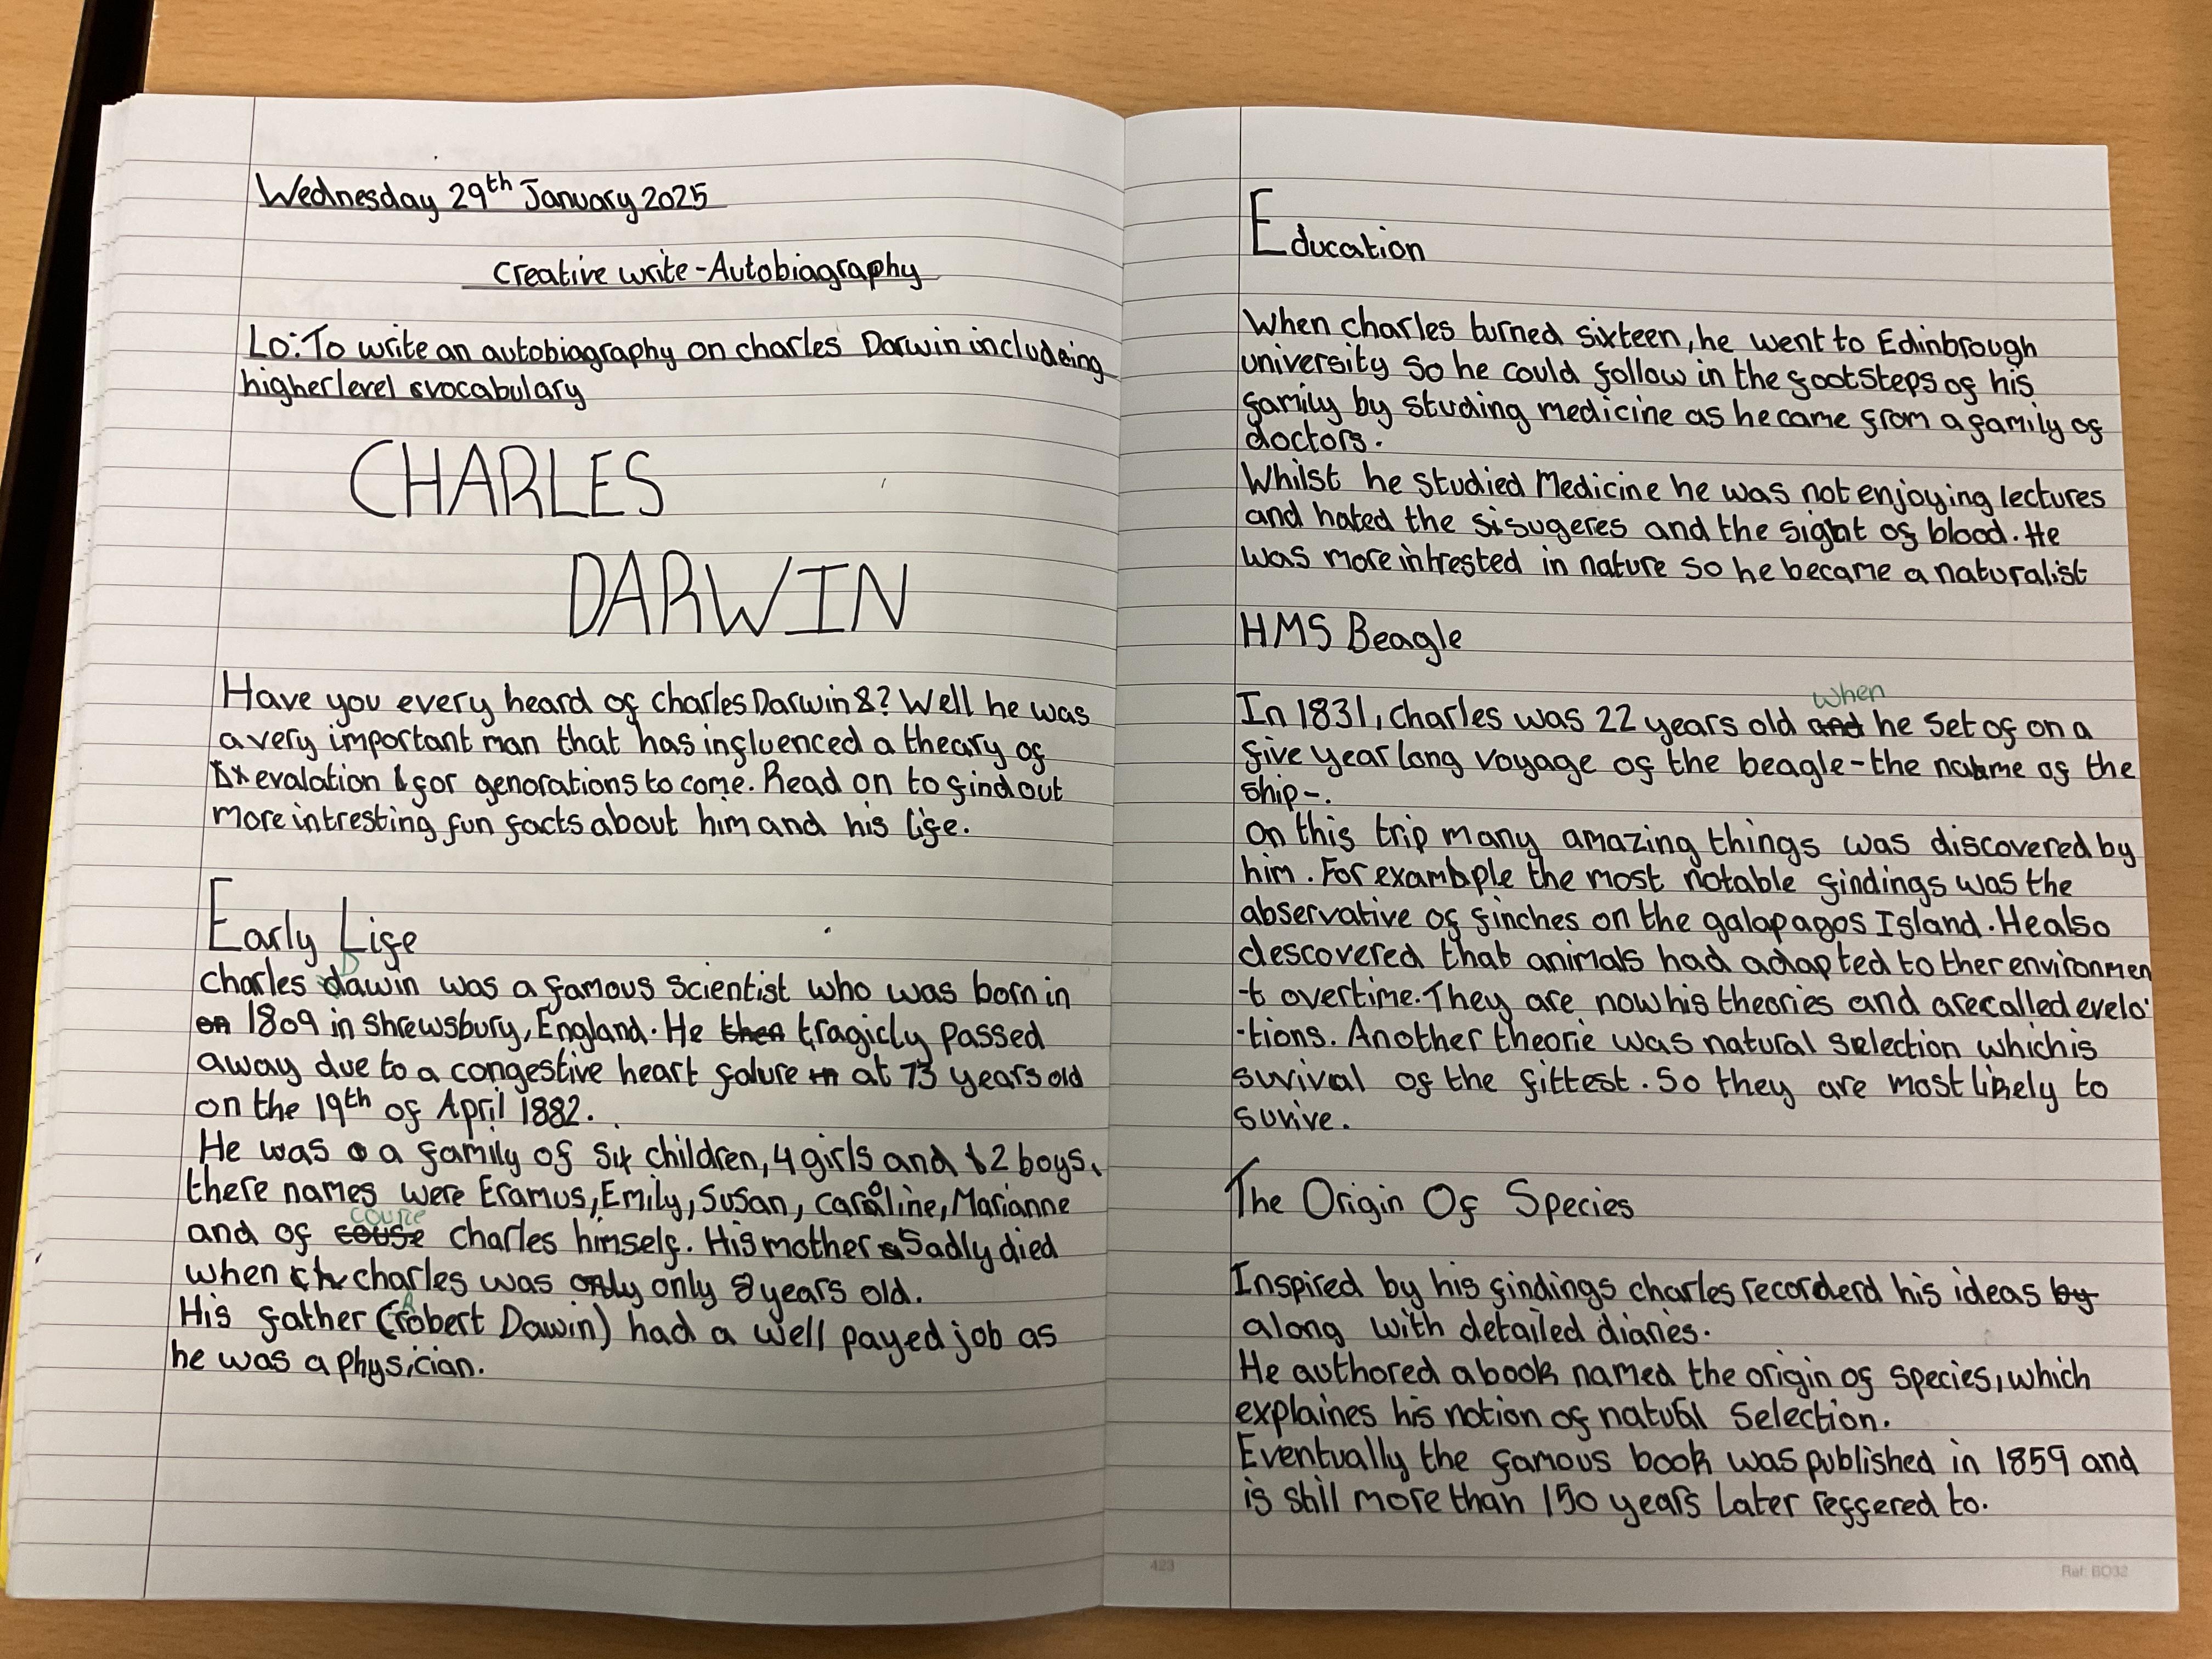 Wednesday 29th January 2025
Creative write - Autobiagraphy
Lo: To write an autobiagraphy on charles Darwin includeing
higher level vocabulary
CHARLES
DARWIN
Have you every heard of charles Darwin? Well he was
a very important man that has influenced a theary of
evalation for genorations to come. Read on to find out
more intresting fun facts about him and his life.
Early Life
charles Dawin was a famous scientist who was born in
1809 in Shrewsbury, England. He tragicly passed
away due to a congestive heart falure at 73 years old
on the 19th of April 1882.
He was a family of six children, 4 girls and 2 boys,
there names were Eramus, Emily, Susan, caroline, Marianne
and of course charles himself. His mother Sadly died
when charles was only 8 years old.
His father (Robert Dawin) had a well payed job as
he was a physician.
Education
When charles turned sixteen, he went to Edinbrough
university so he could follow in the footsteps of his
family by studing medicine as he came from a family of
doctors.
Whilst he studied Medicine he was not enjoying lectures
and hated the sisugeres and the sight of blood. He
was more intrested in nature so he became a naturalist
HMS Beagle
In 1831, charles was 22 years old when he set of on a
five year long voyage of the beagle - the name of the
ship -.
On this trip many amazing things was discovered by
him. For example the most notable findings was the
observative of finches on the galapagos Island. He also
descovered that animals had adapted to ther environmen
-t overtime. They are now his theories and are called evelo
-tions. Another theorie was natural selection which is
surival of the fittest. So they are most likely to
surive.
The Origin Of Species
Inspired by his findings charles recorderd his ideas
along with detailed diaries.
He authored a book named the origin of species, which
explaines his notion of natural selection.
Eventually the famous book was published in 1859 and
is still more than 150 years later reffered to.
423
Ref: BO32